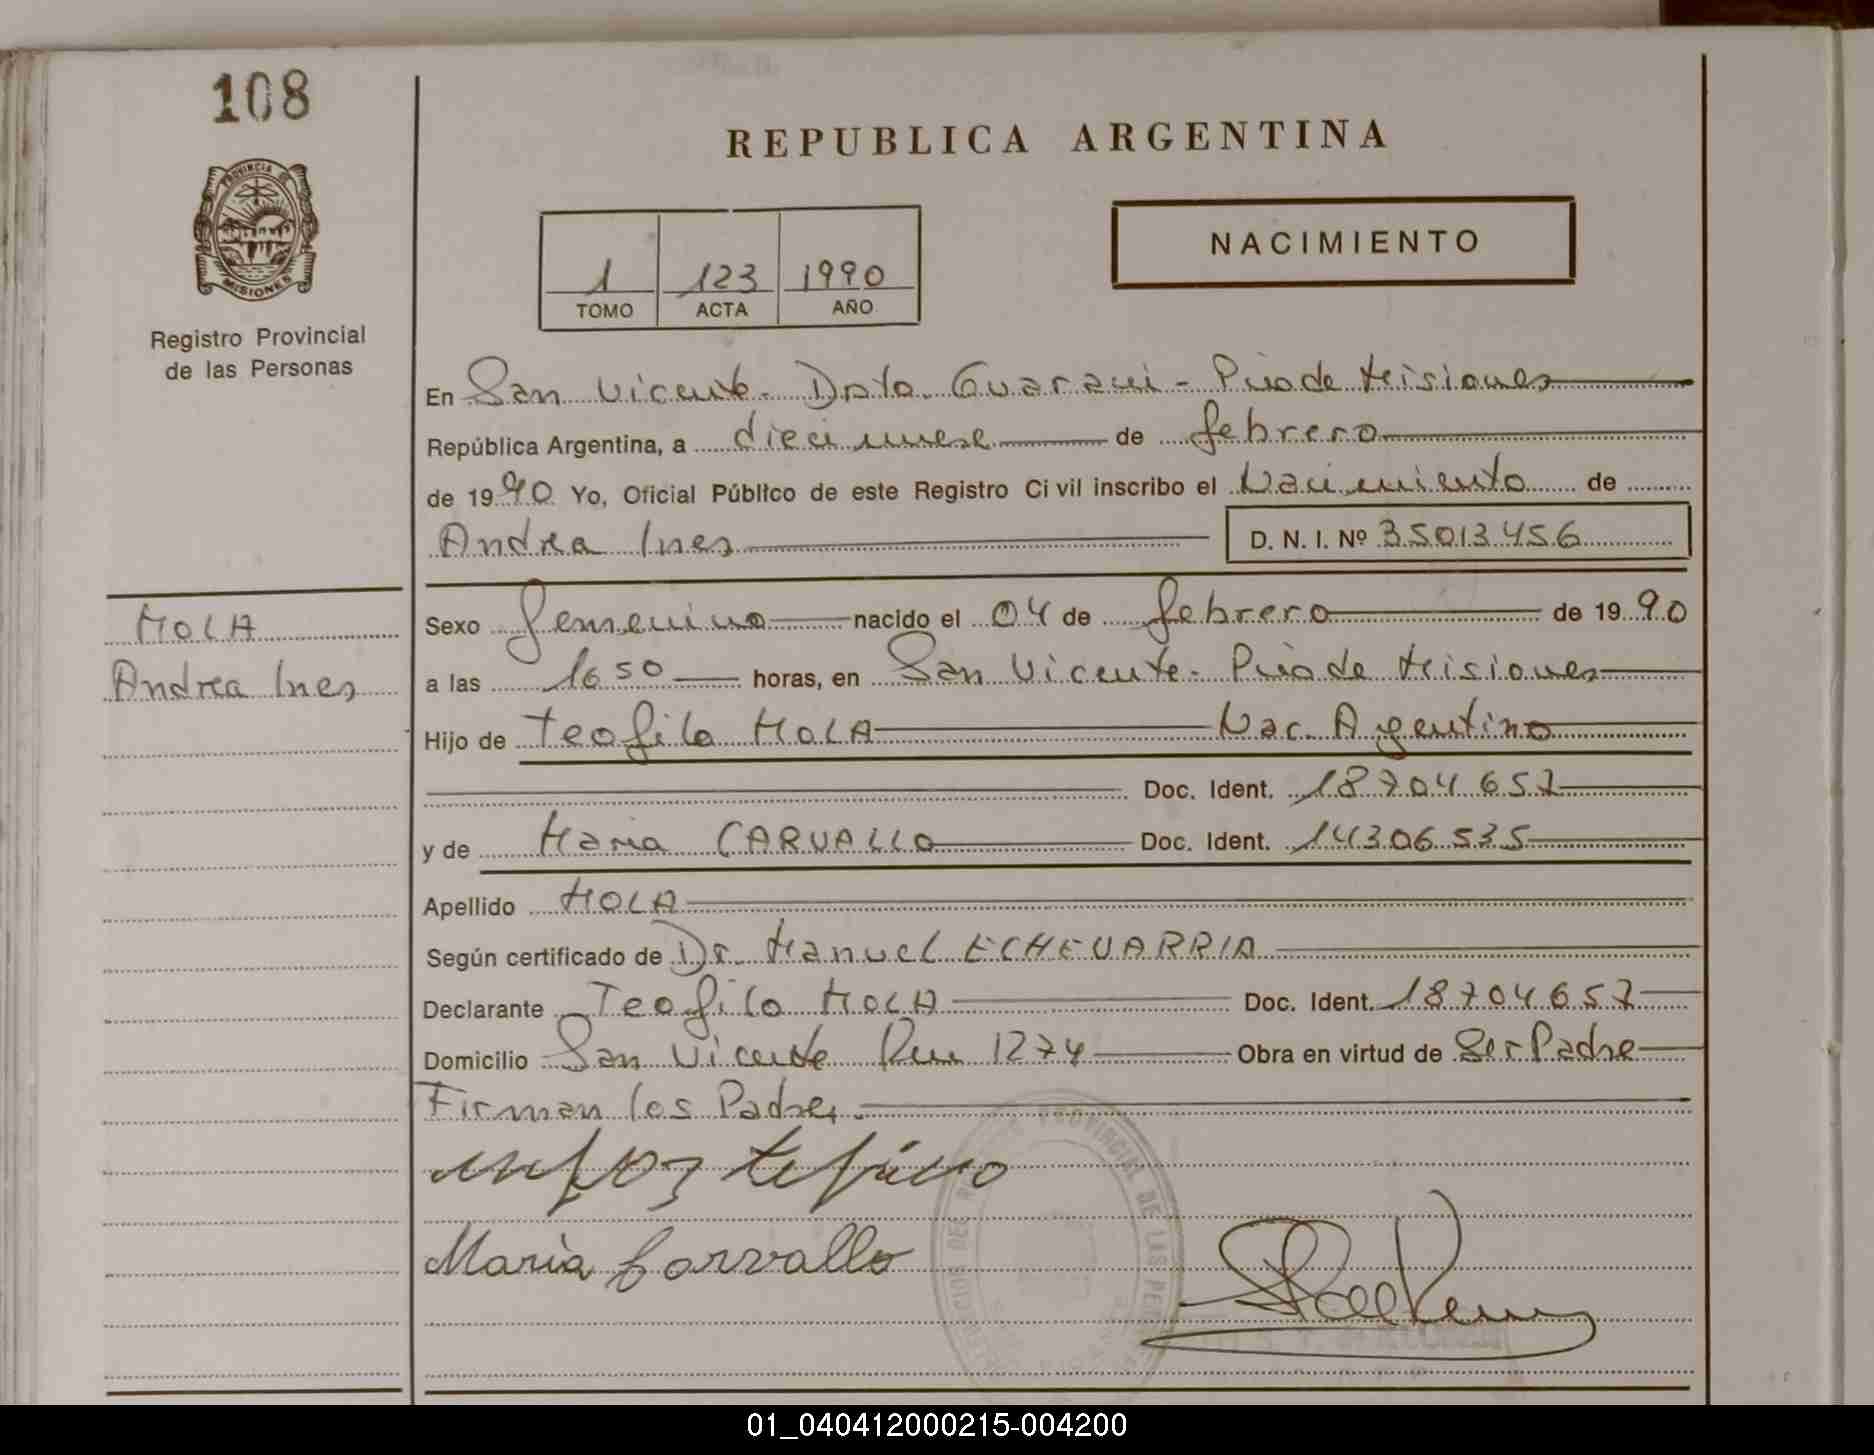 108
REPUBLICA ARGENTINA
PROVINCIA DE
MISIONES
Registro Provincial
de las Personas
NACIMIENTO
1 123 1990
TOMO ACTA AÑO
En San Vicente. Dpto. Guarani - Pcia de Misiones
República Argentina, a diecinueve de febrero
de 1990 Yo, Oficial Público de este Registro Civil inscribo el Nacimiento de
Andrea Ines D. N. I. Nº 35013456
MOLA
Andrea Ines
Sexo femenino nacido el 04 de febrero de 1990
a las 16 50 horas, en San Vicente - Pcia de Misiones
Hijo de Teofilo MOLA Nac. Argentino
Doc. Ident. 18704657
y de Maria CARVALLO Doc. Ident. 14306535
Apellido MOLA
Según certificado de Dr. Manuel ECHEVARRIA
Declarante Teofilo MOLA Doc. Ident. 18704657
Domicilio San Vicente 1274 Obra en virtud de Ser Padre
Firman los Padres.
Maria Carvallo
PROVINCIAL DE LAS
01_040412000215-004200